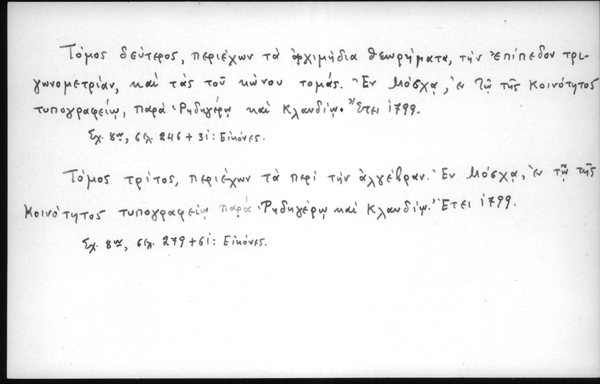 Τόμος δεύτερος, περιέχων τὰ ἀρχιμήδια θεωρήματα, τὴν ἐπίπεδον τρι-
γωνομετρίαν, καὶ τὰς τοῦ κώνου τομάς. Ἐν Μόσχᾳ, ἐν τῷ τῆς Κοινότητος
τυπογραφείῳ, παρὰ Ῥηδηγέρῳ καὶ Κλαυδίῳ. Ἔτει 1799.
Σχ. 8ον, σελ. 246 + 3i: Εἰκόνες.
Τόμος τρίτος, περιέχων τὰ περὶ τὴν ἀλγέβραν. Ἐν Μόσχᾳ, ἐν τῷ τῆς
Κοινότητος τυπογραφείῳ παρὰ Ῥηδηγέρῳ καὶ Κλαυδίῳ. Ἔτει 1799.
Σχ. 8ον, σελ. 279 + 6i: Εἰκόνες.